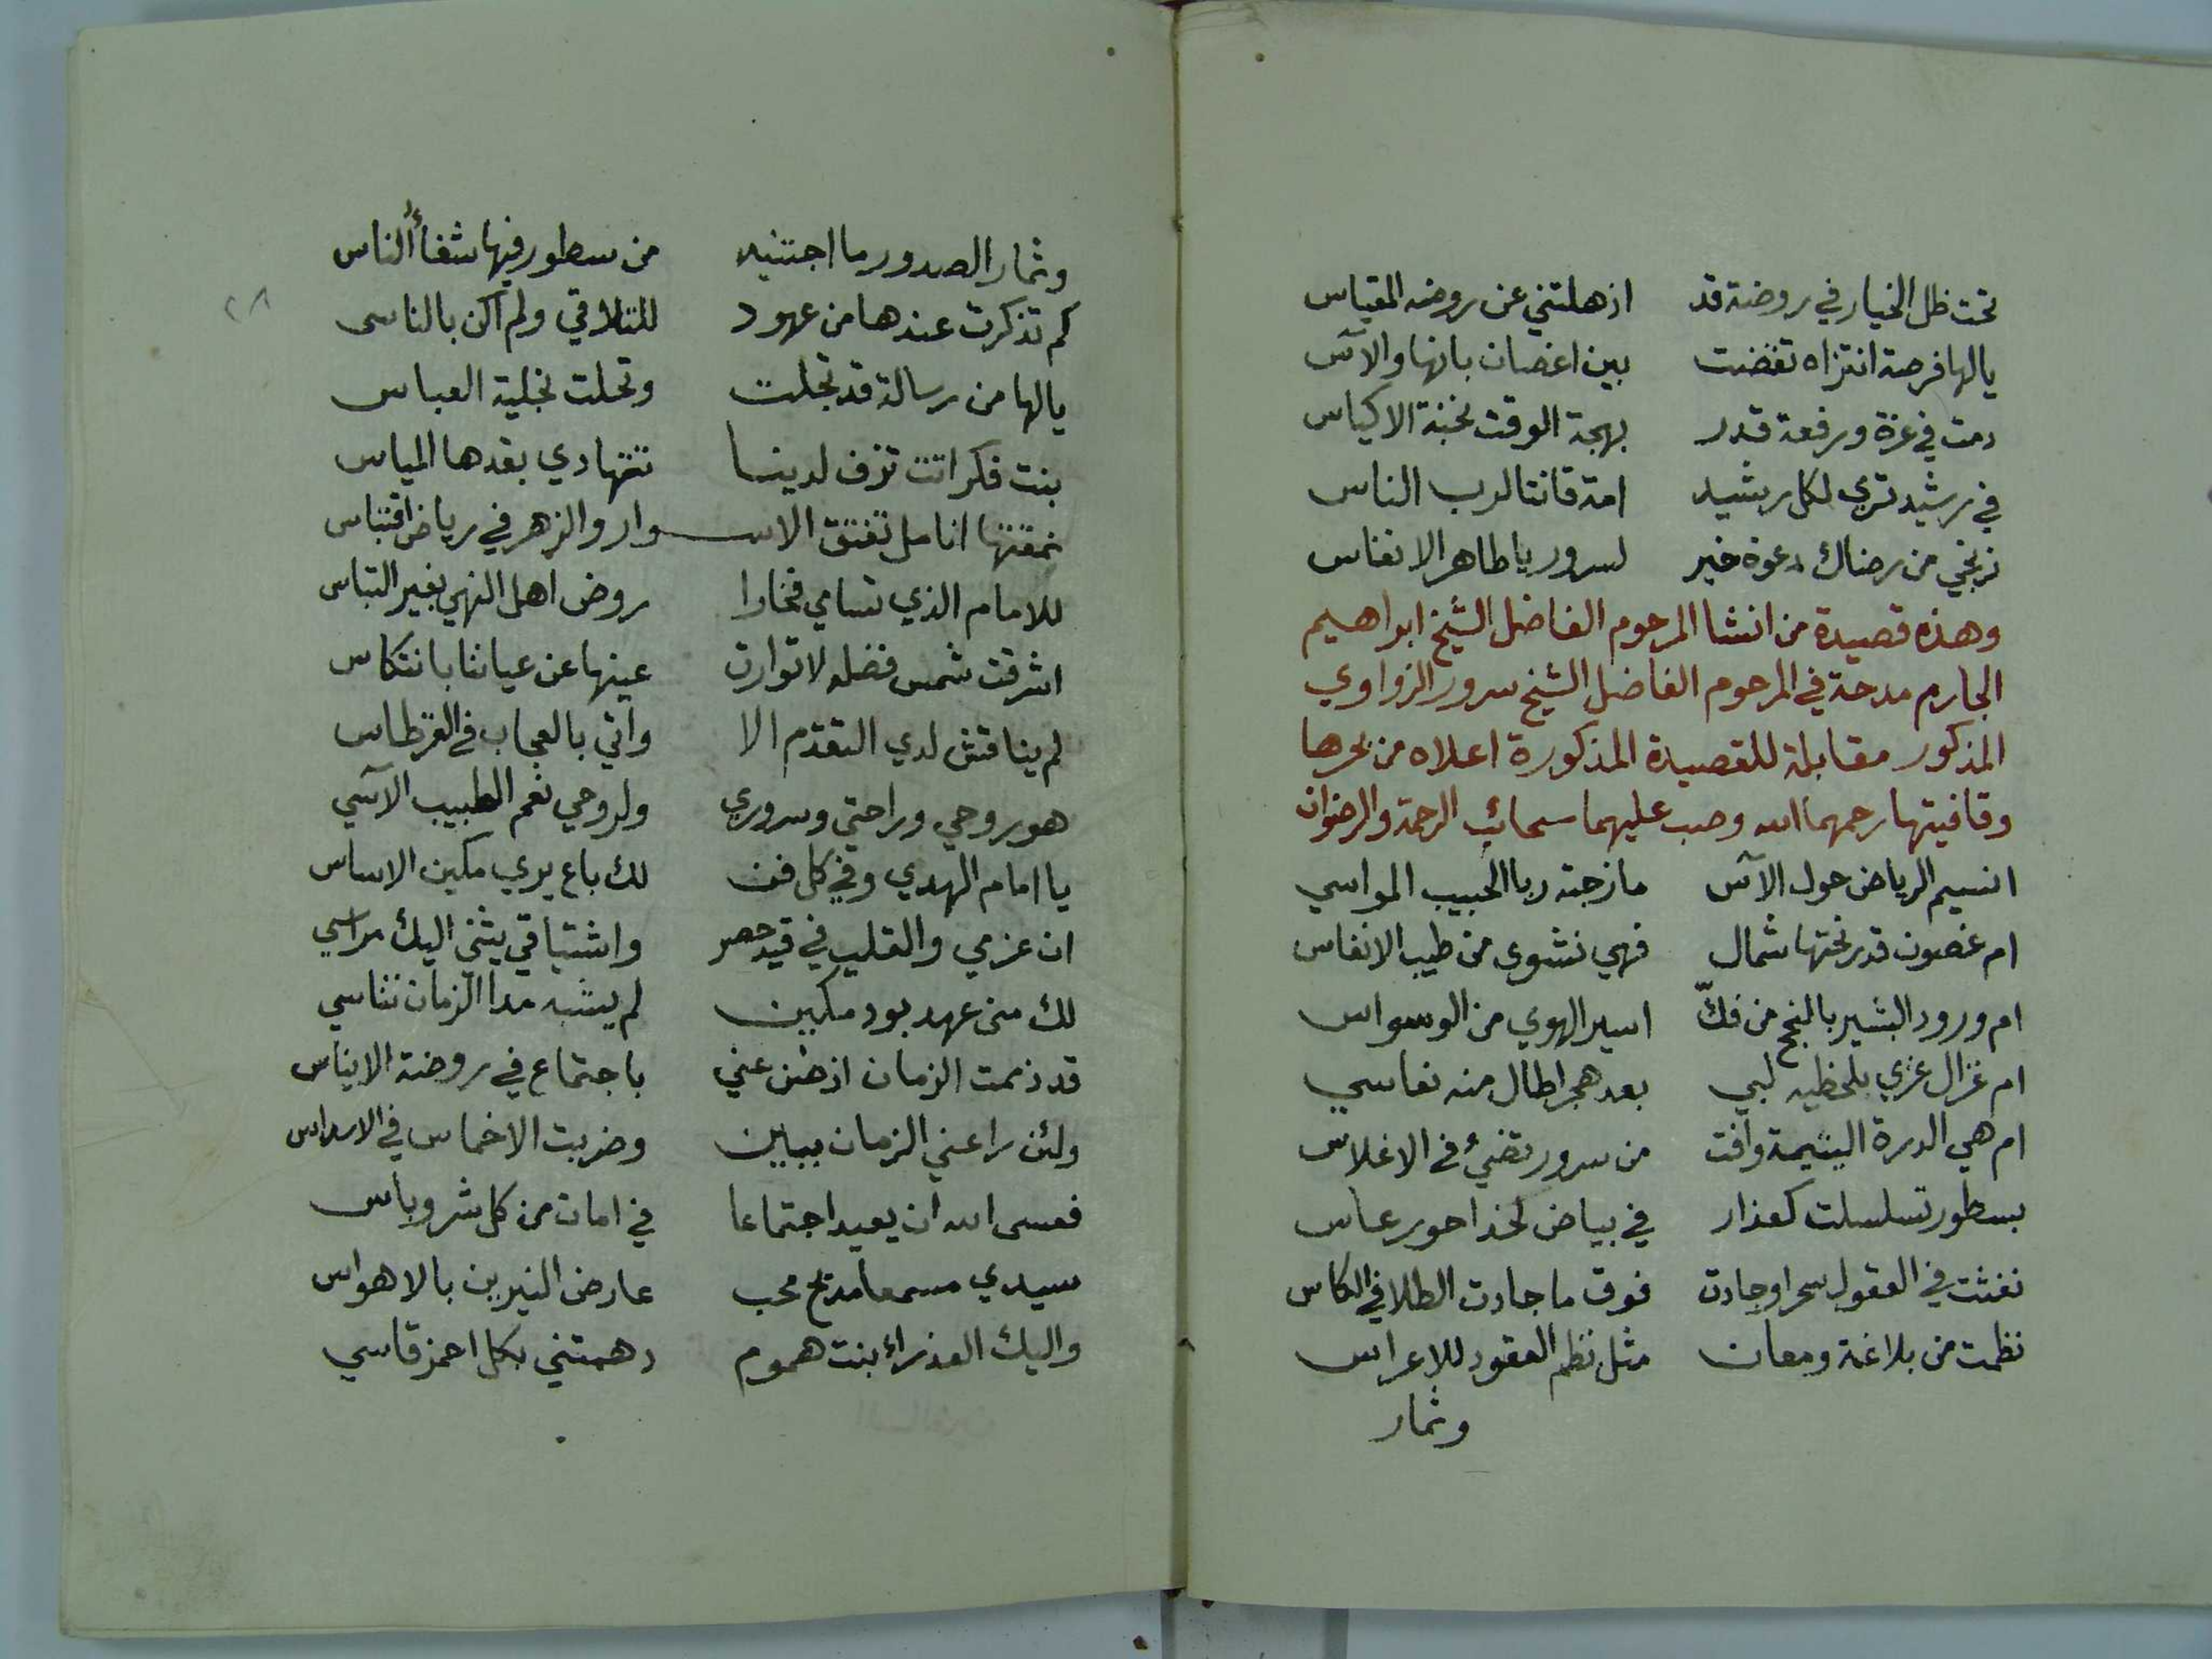 تحت ظل الخيار في روضة قد اذهلتني عن روضه المقياس
يالها فرصة انتزاه تقضت بين اغصان بانها والآس
دمت في عزة ورفعة قدر بهجة الوقت نخبة الاكياس
في رشيد تربي لكل رشيد امة قانتا لرب الناس
نرتجي من رضاك دعوة خير لسرور يا طاهر الانفاس
وهذه قصيدة من انشا المرحوم الفاضل الشيخ ابراهيم
الجارم مدحة في المرحوم الفاضل الشيخ سرور الزواوي
المذكور مقابلة للقصيدة المذكورة اعلاه من بحرها
وقافيتها رحمهما الله وصب عليهما سحائب الرحمة والرضوان
انسيم الرياض حول الآس مازجته ريا الحبيب المواسي
ام غصون قد رنحتها شمال فهي نشوي من طيب الانفاس
ام ورود البشير بالنجح من فكّ اسير الهوي من الوسواس
ام غزال غزي بلحظيه لبي بعد هجر اطال منه نعاسي
ام هي الدرة اليتيمة وافت من سرور تضيئ في الاغلاس
بسطور تسلسلت كعذار في بياض لخد احور عاس
نفثت في العقول سحرا وجادت فوق ما جادت الطلا في الكاس
نظمت من بلاغة ومعان مثل نظم العقود للاعراس
وثمار
وثمار الصدور ما اجتنيه من سطور فيها شفاء الناس
كم تذكرت عندها من عهود للتلاقي ولم اكن بالناسي
يالها من رسالة قد تجلت وتحلت بحلية العباس
بنت فكر اتت تزف لدينا تتهادي بقدها المياس
نمقتها انامل تفتق الاسـوار والزهر في رياض اقتباس
للامام الذي تسامي فخارا روض اهل النهي بغير التباس
اشرقت شمس فضله لا توارت عينها عن عياننا بانتكاس
لم يناقش لدي التقدم الا واتي بالعجاب في القرطاس
هو روحي وراحتي وسروري ولروحي نعم الطبيب الآسي
يا امام الهدي وفي كل فن لك باع يري مكين الاساس
ان عزمي والقلب في قيد حصر واشتياقي يثني اليك مراسي
لك مني عهد بود مكين لم يشبه مدا الزمان تناسي
قد ذممت الزمان اذ ضن عني باجتماع في روضة الايناس
ولئن راعني الزمان ببين وضربت الاخماس في الاسداس
فعسى الله ان يعيد اجتماعا في امان من كل شر وباس
سيدي مسمعا مديح محب عارض النيرين بالاهواس
واليك العذراء بنت هموم دهمتني بكل احمز قاسي
٢٨